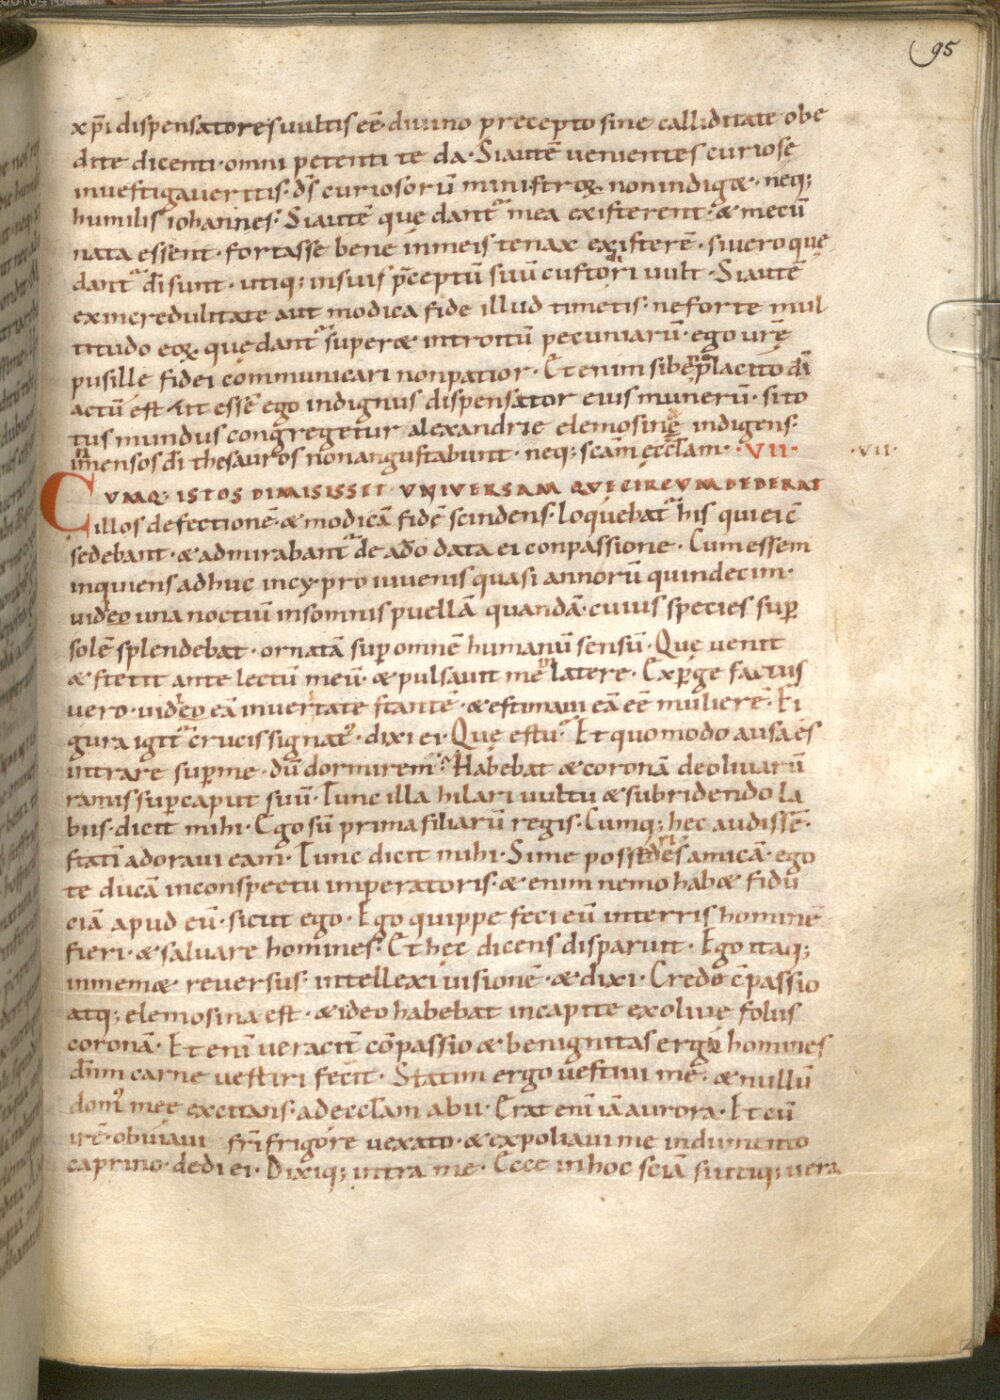 95
xp̄i dispensatores uultis eē· diuino precepto sine calliditate obe
dite dicenti· omni petenti te da· Si autē uenientes curiose
inuestigaueritis· ds̄ curiosorū ministroꝝ non indig&· neq;
humilis iohannes· Si autē que dant᷑ mea existerent· & mecū
nata essent· fortasse bene in meis tenax existerē· si uero quę
dant᷑ dī sunt· utiq; in suis p̄ceptū suū custodiri uult· Si autē
ex incredulitate aut modica fide illud timetis· ne forte mul
titudo eoꝝ que dant᷑ super& introitū pecuniarū· ego urę
pusille fidei communicari non patior· Etenim si bene placito dī
actū est ut essē ego indignus dispensator eius munerū· si to
tus mundus congregetur alexandrie elemosinę indigens·
inmensos dī thesauros non angustabunt· neq; scām ęcclam· ·VII· ·VII·
CUMQ; ISTOS DIMISISSET UNIVERSAM QUE CIRCUMDEDERAT
illos defectionē & modicā fidē scindens· loquebat᷑ his qui ei c̄
sedebant· & admirabant᷑ de a dō data ei conpassione· Cum essem
inquiens adhuc in cypro iuuenis quasi annorū quindecim·
uideo una noctiū in somnis puellā quandā· cuius species sup̄
solē splendebat· ornatā sup omnē humanū sensū· Que uenit
& stetit ante lectū meū· & pulsauit me latere· Exp̱gefactus
uero· uideo eā in ueritate stantē· & estimaui eā eē mulierē· Fi
gura igit᷑ crucis signat᷒· dixi ei· Que es tu· Et quomodo ausa es
intrare sup me· dū dormirem· Habebat & coronā de oliuarū
ramis sup caput suū· Tunc illa hilari uultu & subridendo la
biis· dicit mihi· Ego sū prima filiarū regis· Cumq; hec audissē·
statī adoraui eam· Tunc dicit mihi· Si me possederis amicā· ego
te ducā in conspectu imperatoris· & enim nemo hab& fidu
ciā apud eū· sicut ego· Ego quippe feci eū in terris hominē
fieri· & saluare homines· Et hec dicens disparuit· Ego itaq;
in mem& reuersus· intellexi uisionē· & dixi· Credo c̄passio
atq; elemosina est· & ideo habebat in capite ex oliue foliis
coronā· Et enī ueracit̄ cōpassio & benignitas erga homines
dn̄m carne uestiri fecit· Statim ergo uestiui me· & nullū
dom᷒ mee excitans· ad ecclam abii· Erat enī iā aurora· Et cū
irē· obuiaui frī frigore uexato· & expoliaui me indumento
caprino· dedi ei· Dixiq; intra me· Ecce in hoc sciā si utiq; uera